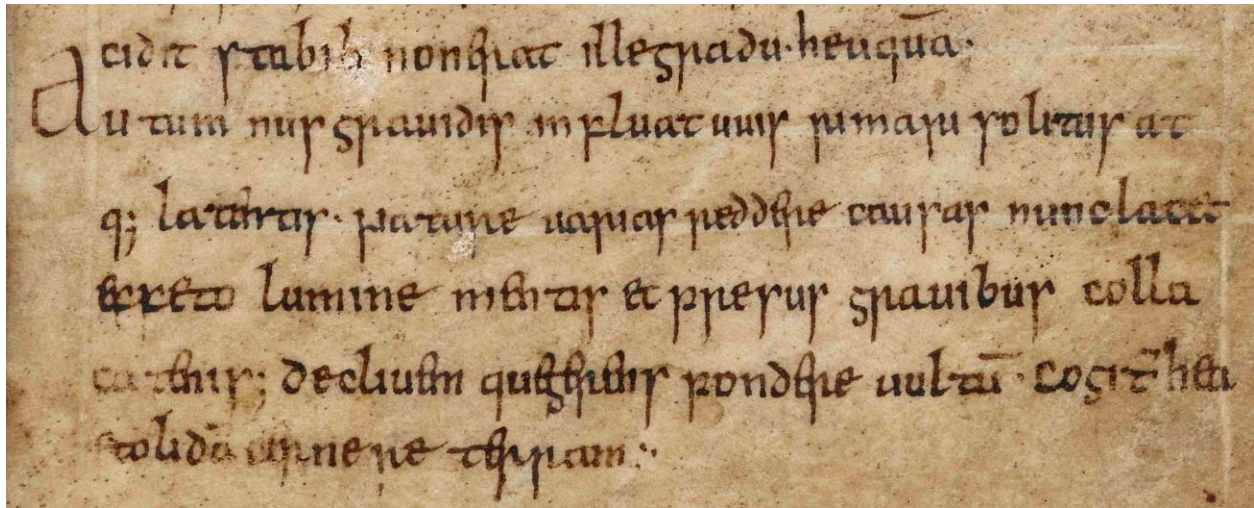 cidit stabili non erat ille gradu· heu quā·
Autumnus grauidis influat uuis rimari solitus at
q; latentis· nature uarias reddere causas nunc iacet
effeto lumine mentis et presus grauibus colla
catenis; decliuem que gerens pondere uultū· cogit̄ heu
stolidā cernere terram:·